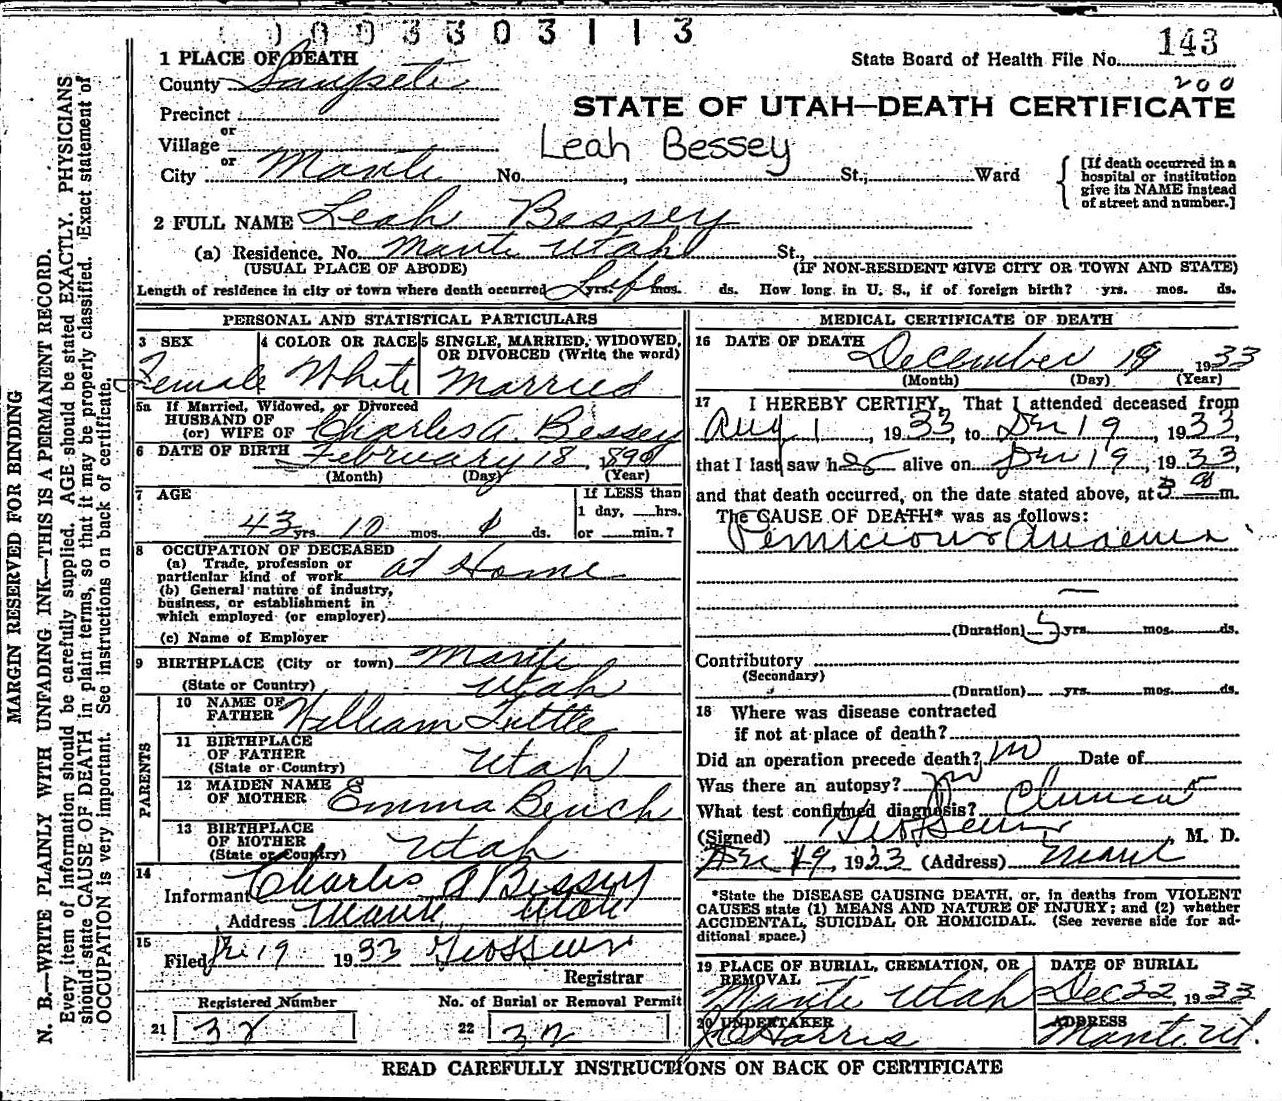 0003303113
143
State Board of Health File No.
200
1 PLACE OF DEATH
County Sanpete
STATE OF UTAH—DEATH CERTIFICATE
Precinct
or
Village
Leah Bessey
or
City Manti No. , St.; Ward
[If death occurred in a
hospital or institution
give its NAME instead
of street and number.]
2 FULL NAME Leah Bessey
(a) Residence. No. Manti Utah St.,
(USUAL PLACE OF ABODE) (IF NON-RESIDENT GIVE CITY OR TOWN AND STATE)
Length of residence in city or town where death occurred Life yrs. mos. ds. How long in U. S., if of foreign birth? yrs. mos. ds.
PERSONAL AND STATISTICAL PARTICULARS
3 SEX
Female
4 COLOR OR RACE
White
5 SINGLE, MARRIED, WIDOWED,
OR DIVORCED (Write the word)
Married
5a If Married, Widowed, or Divorced
HUSBAND OF
(or) WIFE OF Charles A. Bessey
6 DATE OF BIRTH February 18, 1890
(Month) (Day) (Year)
7 AGE
43 yrs. 10 mos. 1 ds.
If LESS than
1 day, hrs.
or min.?
8 OCCUPATION OF DECEASED
(a) Trade, profession or
particular kind of work at Home
(b) General nature of industry,
business, or establishment in
which employed (or employer)
(c) Name of Employer
9 BIRTHPLACE (City or town) Manti
(State or Country) Utah
PARENTS
10 NAME OF
FATHER William Tuttle
11 BIRTHPLACE
OF FATHER
(State or Country) Utah
12 MAIDEN NAME
OF MOTHER Emma Bench
13 BIRTHPLACE
OF MOTHER
(State or Country) Utah
14
Informant Charles A Bessey
Address Manti Utah
15
Filed Dec 19 1933
Registrar
Registered Number
21 32
No. of Burial or Removal Permit
22 32
MEDICAL CERTIFICATE OF DEATH
16 DATE OF DEATH
December 19 1933
(Month) (Day) (Year)
17 I HEREBY CERTIFY, That I attended deceased from
Aug 1, 1933, to Dec 19, 1933,
that I last saw her alive on Dec 19, 1933,
and that death occurred, on the date stated above, at 3 a m.
The CAUSE OF DEATH* was as follows:
Pernicious Anaemia
(Duration) 5 yrs. mos. ds.
Contributory
(Secondary)
(Duration) yrs. mos. ds.
18 Where was disease contracted
if not at place of death?
Did an operation precede death? no Date of
Was there an autopsy? no
What test confirmed diagnosis? Clinical
(Signed) M. D.
Dec 19, 1933 (Address) Manti
*State the DISEASE CAUSING DEATH, or, in deaths from VIOLENT
CAUSES state (1) MEANS AND NATURE OF INJURY; and (2) whether
ACCIDENTAL, SUICIDAL OR HOMICIDAL. (See reverse side for ad-
ditional space.)
19 PLACE OF BURIAL, CREMATION, OR
REMOVAL
Manti Utah
DATE OF BURIAL
Dec 22, 1933
20 UNDERTAKER
Harris
ADDRESS
Manti Ut.
READ CAREFULLY INSTRUCTIONS ON BACK OF CERTIFICATE
MARGIN RESERVED FOR BINDING
N. B.—WRITE PLAINLY WITH UNFADING INK—THIS IS A PERMANENT RECORD.
Every item of information should be carefully supplied. AGE should be stated EXACTLY. PHYSICIANS
should state CAUSE OF DEATH in plain terms, so that it may be properly classified. Exact statement of
OCCUPATION is very important. See instructions on back of certificate.